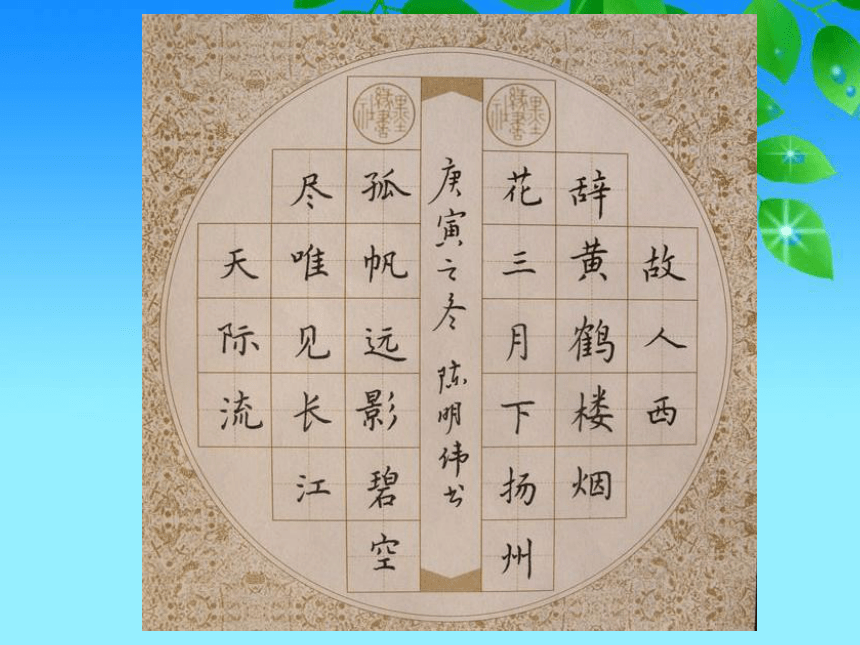 故人西
辞黄鹤楼烟
墨缘书社
花三月下扬州
庚寅之冬 陈明伟书
墨缘书社
孤帆远影碧空
尽唯见长江
天际流